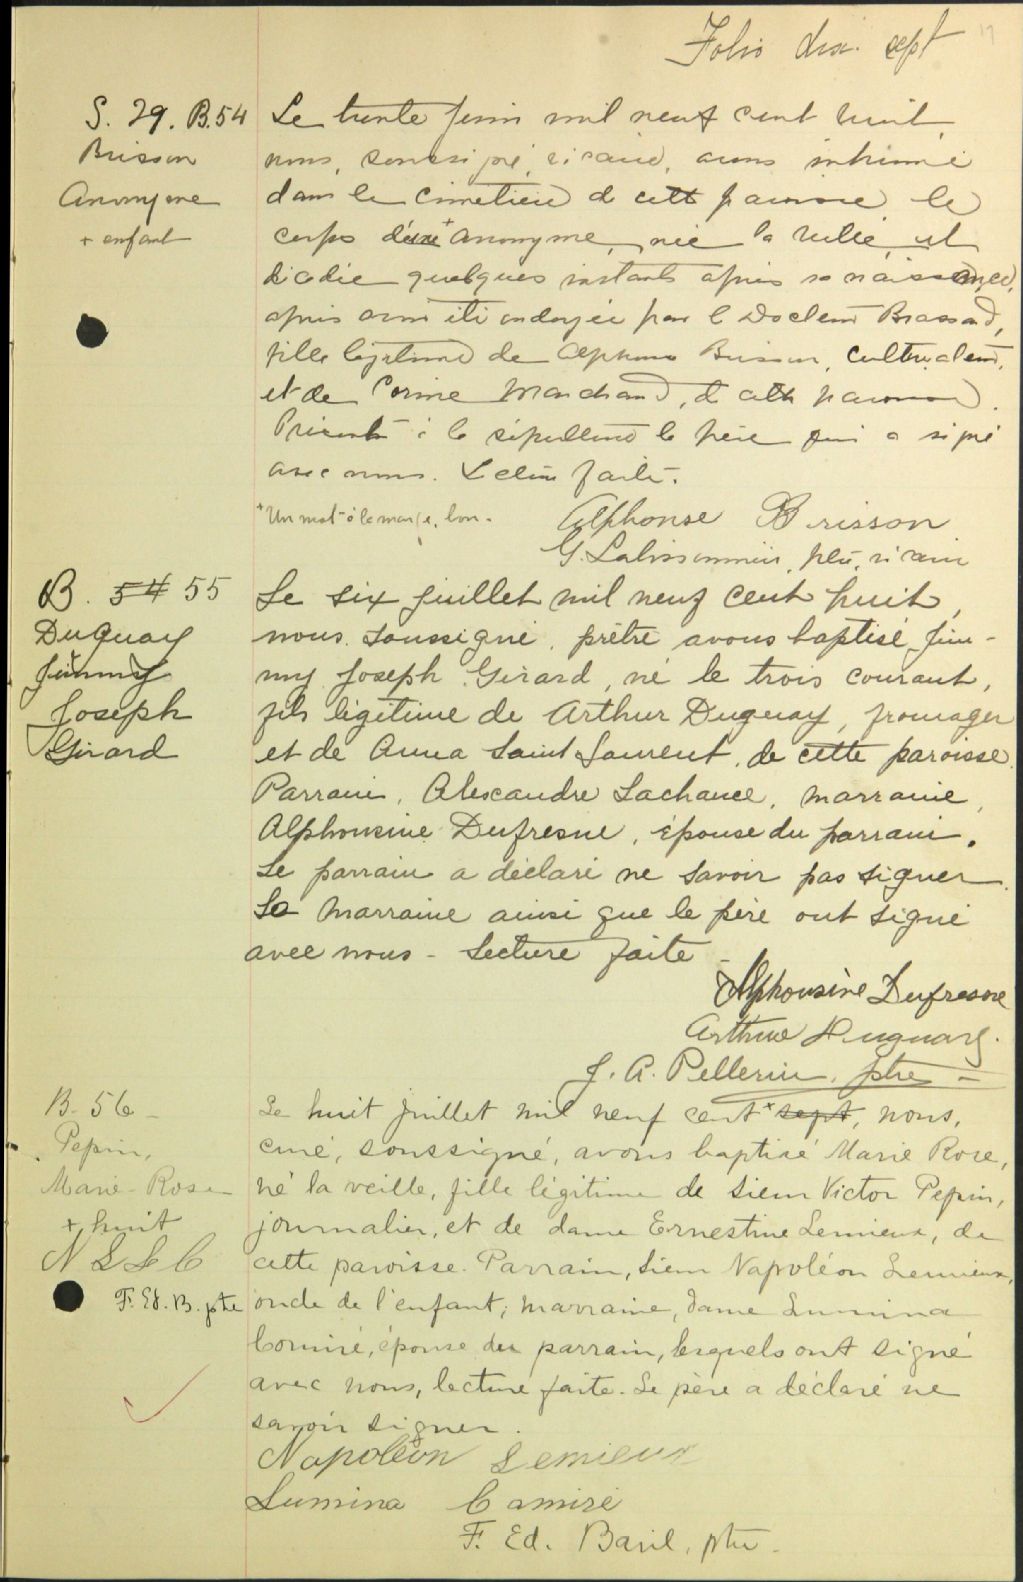 Folio dix sept
17
S. 29. B.54
Brisson
Anonyme
+ enfant
Le trente juin mil neuf cent huit
nous, soussigné, vicaire, avons inhumé
dans le cimetière de cette paroisse le
corps d'une + anonyme, née la veille et
décédée quelques instants après sa naissance,
après avoir été ondoyée par le Docteur Brassard,
fille légitime de Alphonse Brisson, cultivateur,
et de Corine Marchand, de cette paroisse.
Présent à la sépulture le père qui a signé
avec nous. Lecture faite.
+ Un mot à la marge, bon.
Alphonse Brisson
G. Labissonnière, ptre, vicaire
B. 54 55
Duguay
Jimmy
Joseph
Girard
Le six juillet mil neuf cent huit,
nous soussigné, prêtre avons baptisé Jim-
my Joseph Girard, né le trois courant,
fils légitime de Arthur Duguay, fromager
et de Anna Saint Laurent, de cette paroisse.
Parrain, Alexandre Lachance, marraine,
Alphonsine Dufresne, épouse du parrain.
Le parrain a déclaré ne savoir pas signer.
La marraine ainsi que le père ont signé
avec nous - Lecture faite -
Alphonsine Dufresne
Arthur Duguay.
J. A. Pellerin, ptre -
B. 56 -
Pepin,
Marie-Rose
+ huit
N L L C
F. Ed. B. ptre
Le huit juillet mil neuf cent + sept, nous,
curé, soussigné, avons baptisé Marie Rose,
né la veille, fille légitime de sieur Victor Pepin,
journalier, et de dame Ernestine Lemieux, de
cette paroisse. Parrain, sieur Napoléon Lemieux,
oncle de l'enfant; marraine, dame Lumina
Comiré, épouse du parrain, lesquels ont signé
avec nous, lecture faite. Le père a déclaré ne
savoir signer.
Napoléon Lemieux
Lumina Camiré
F. Ed. Baril, ptre.